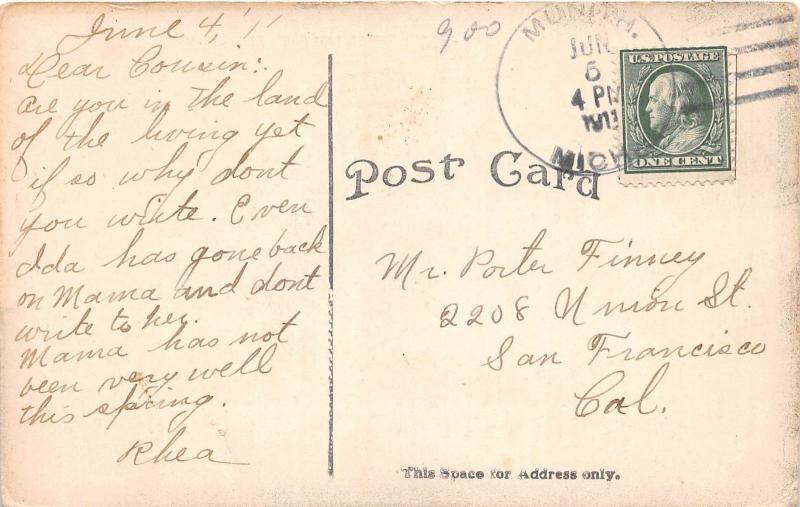 June 4, '11
Dear Cousin:
are you in the land
of the living yet
if so why dont
you write. Even
Ida has gone back
on Mama and dont
write to her.
Mama has not
been very well
this spring.
Rhea
900
MUNITH.
JUN
5
4 PM
1911
MICH.
U.S. POSTAGE
ONE CENT
Post Card
Mr. Porter Finney
2208 Union St.
San Francisco
Cal.
This Space for Address only.